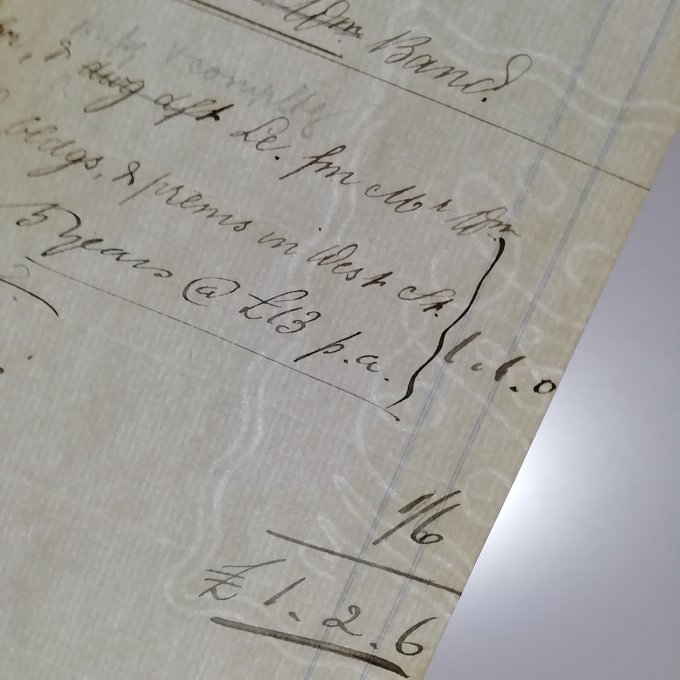 Wm. Band
& dwg dft Le. fm Mr Wm.
bldgs, & prems in West St.
5 years @ £13 p.a. } 1.1.0
1/6
£1.2.6